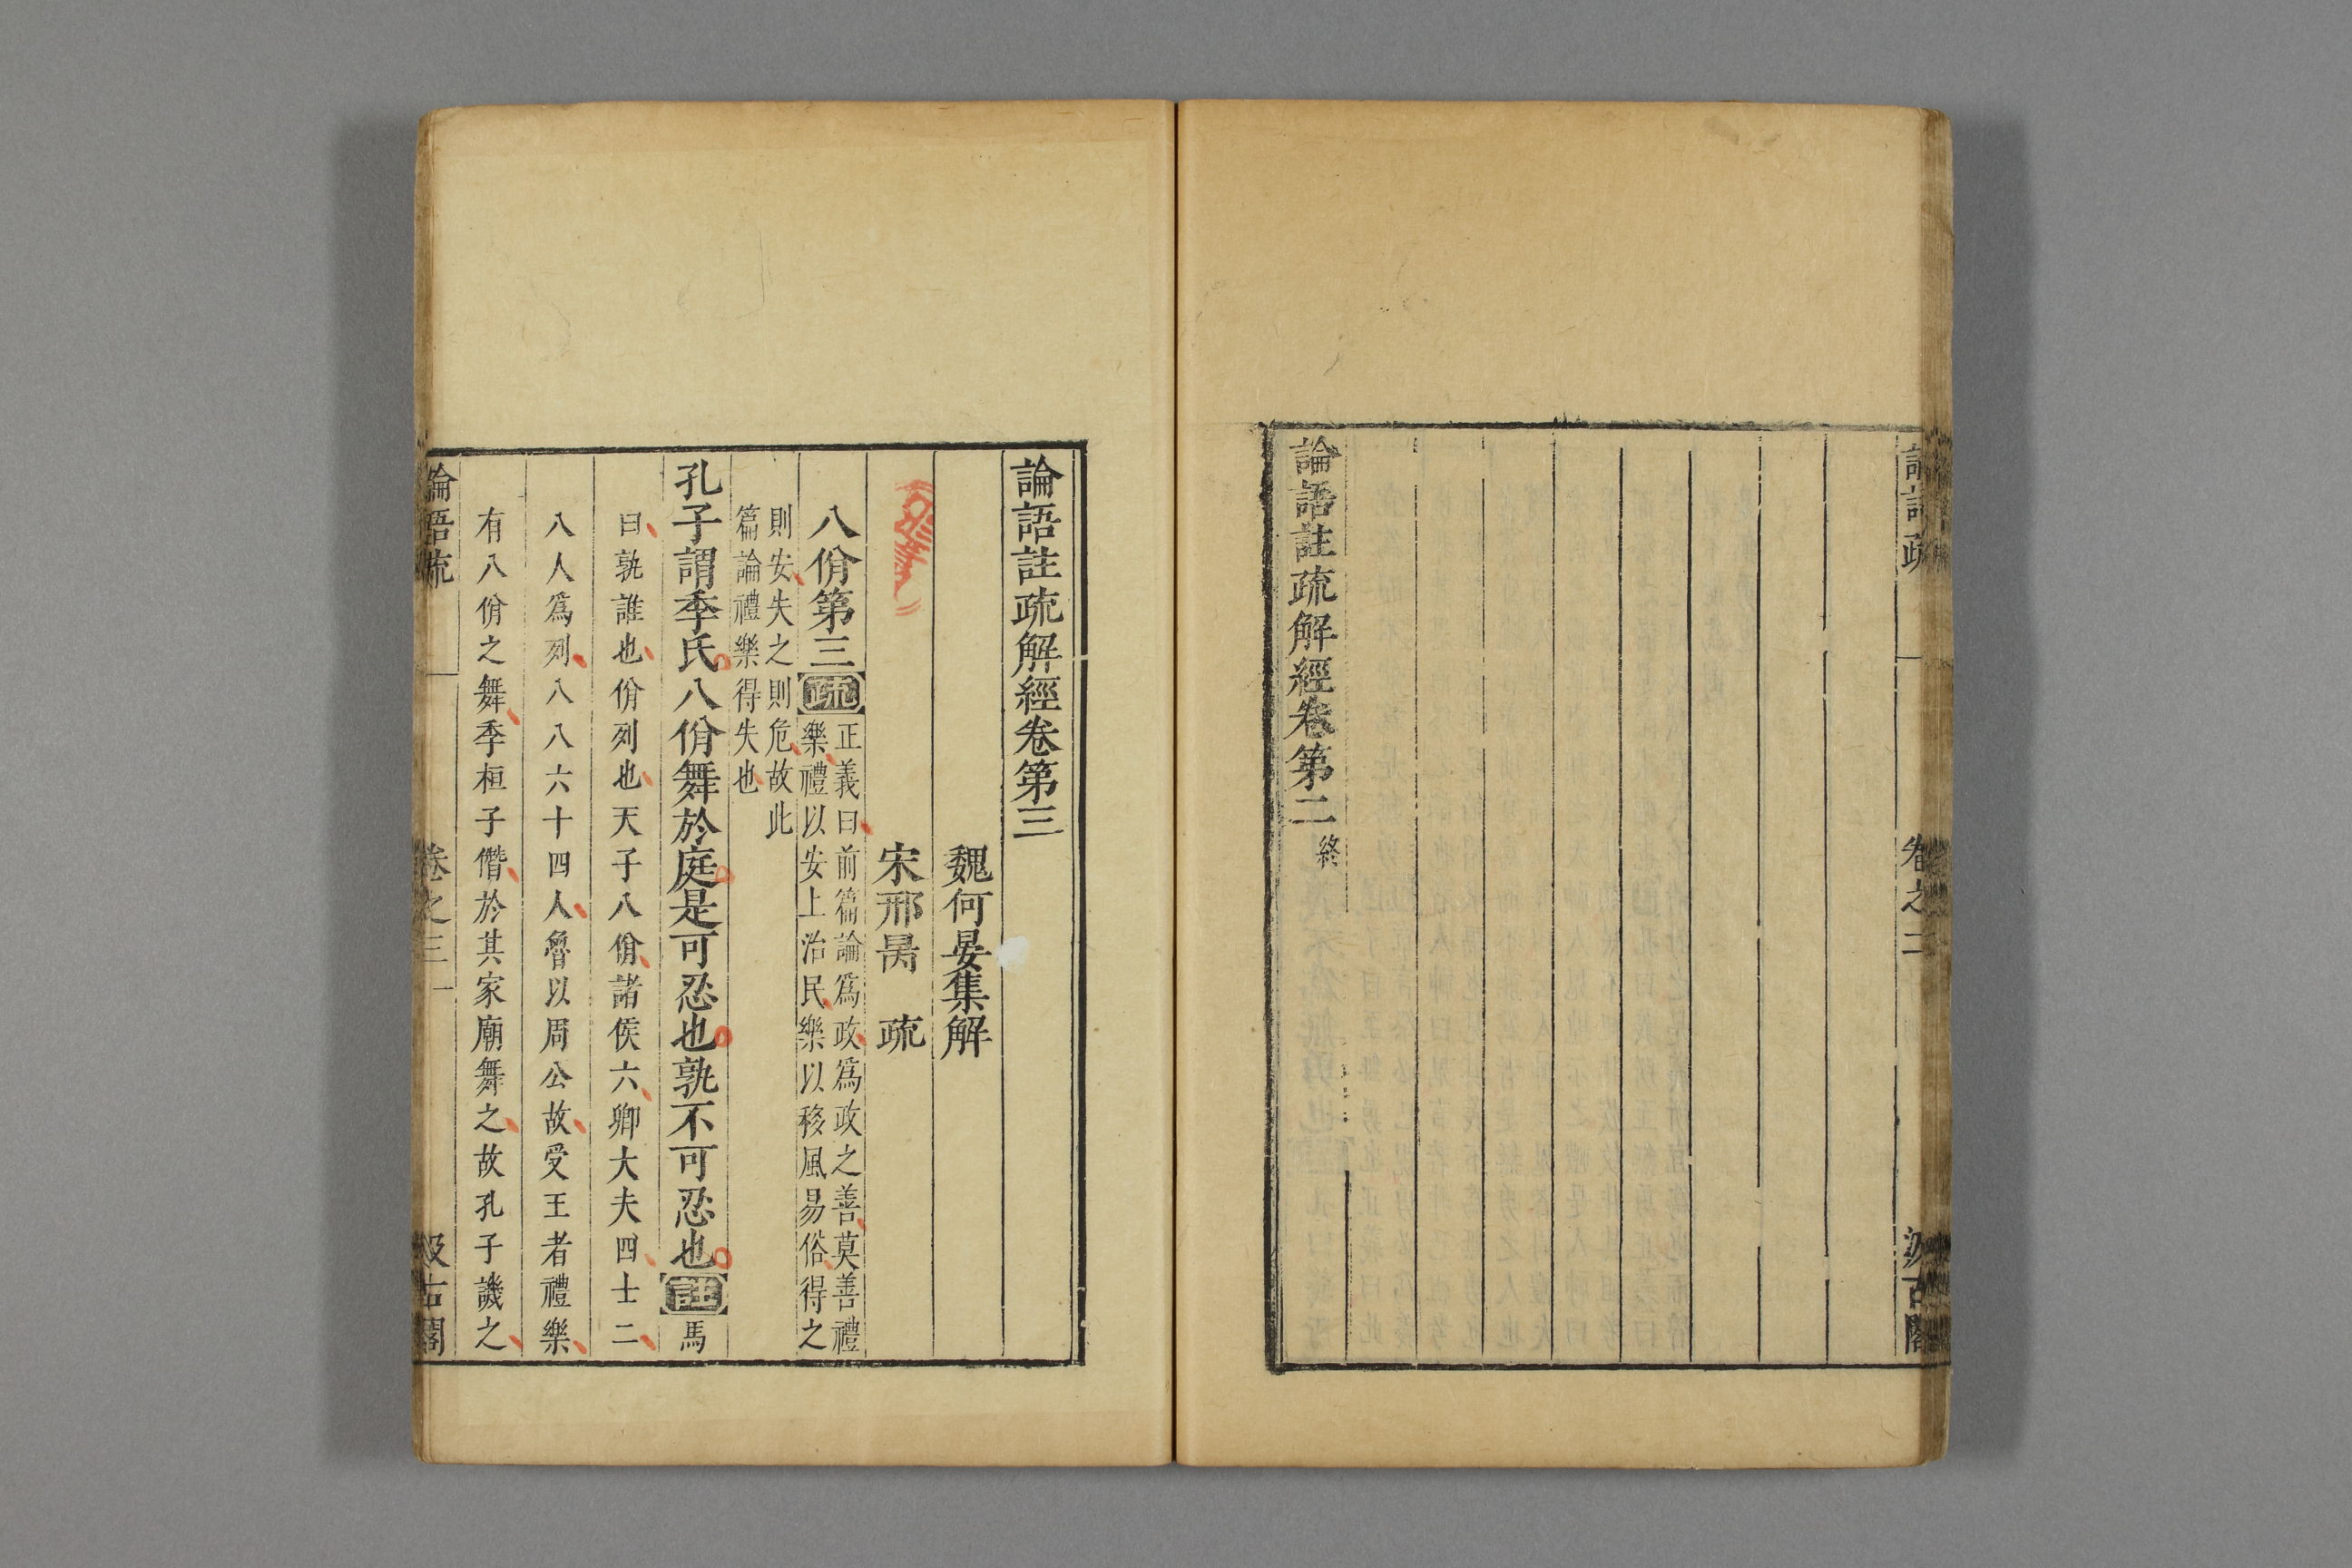 論語註疏解經卷第二終
論語疏
卷之二
汲古閣
論語註疏解經卷第三
魏何晏集解
宋邢昺 疏
八佾第三疏正義曰前篇論爲政爲政之善莫善禮
樂禮以安上治民樂以移風易俗得之
則安失之則危故此
篇論禮樂得失也
孔子謂季氏八佾舞於庭是可忍也孰不可忍也註馬
曰孰誰也佾列也天子八佾諸侯六卿大夫四士二
八人爲列八八六十四人魯以周公故受王者禮樂
有八佾之舞季桓子僭於其家廟舞之故孔子譏之
論語疏
卷之三
一
汲古閣